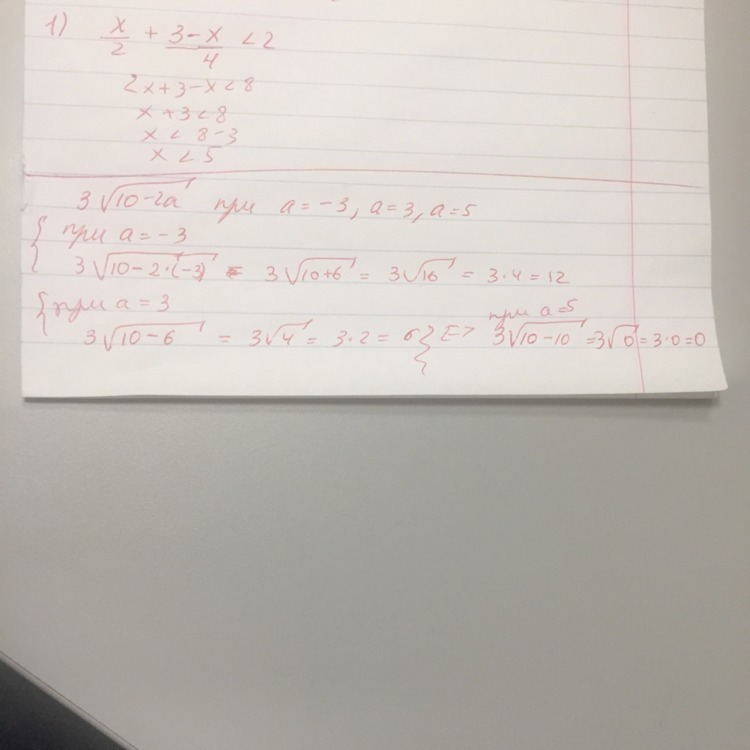 1) x/2 + 3-x/4 < 2
2x+3-x<8
x+3<8
x < 8-3
x < 5
3√10-2a при a=-3, a=3, a=5
{ при a=-3
3√10-2·(-3) = 3√10+6 = 3√16 = 3·4=12
{ при a=3
3√10-6 = 3√4 = 3·2 = 6 } => при a=5 3√10-10 =3√0=3·0=0